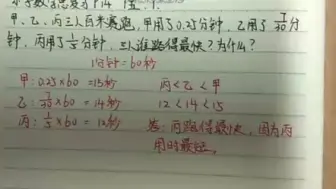 甲、乙、丙三人百米赛跑,甲用了0.25分钟,乙用了7/30分
钟,丙用了1/5分钟,三人谁跑得最快?为什么?
1分钟=60秒
甲:0.25×60=15秒 丙<乙<甲
乙:7/30×60=14秒 12<14<15
丙:1/5×60=12秒 答:丙跑得最快,因为丙
用时最短。